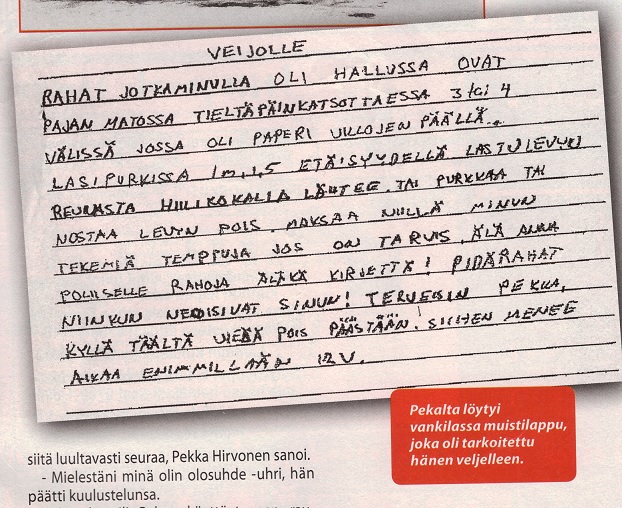 VEIJOLLE
RAHAT JOTKA MINULLA OLI HALLUSSA OVAT
PAJAN MATOSSA TIELTÄPÄIN KATSOTTAESSA 3 tai 4
VÄLISSÄ JOSSA OLI PAPERI VILLOJEN PÄÄLLÄ.
LASIPURKISSA 1m, 1,5 ETÄISYYDELLÄ LASTULEVYN
REUNASTA HIILIKOKALLA LÄHTEE. TAI PURKKAA TAI
NOSTAA LEVYN POIS. MAKSAA NIILLÄ MINUN
TEKEMIÄ TEMPPUJA JOS ON TARVIS. ÄLÄ ANNA
POLIISELLE RAHOJA ÄLÄKÄ KIRJETTÄ! PIDÄ RAHAT
NIINKUN NE OISIVAT SINUN! TERVEISIN PEKKA,
KYLLÄ TÄÄLTÄ VIELÄ POIS PÄÄSTÄÄN. SIIHEN MENEE
AIKAA ENIMMILLÄÄN 12 V.
Pekalta löytyi
vankilassa muistilappu,
joka oli tarkoitettu
hänen veljelleen.
siitä luultavasti seuraa, Pekka Hirvonen sanoi.
- Mielestäni minä olin olosuhde -uhri, hän
päätti kuulustelunsa.